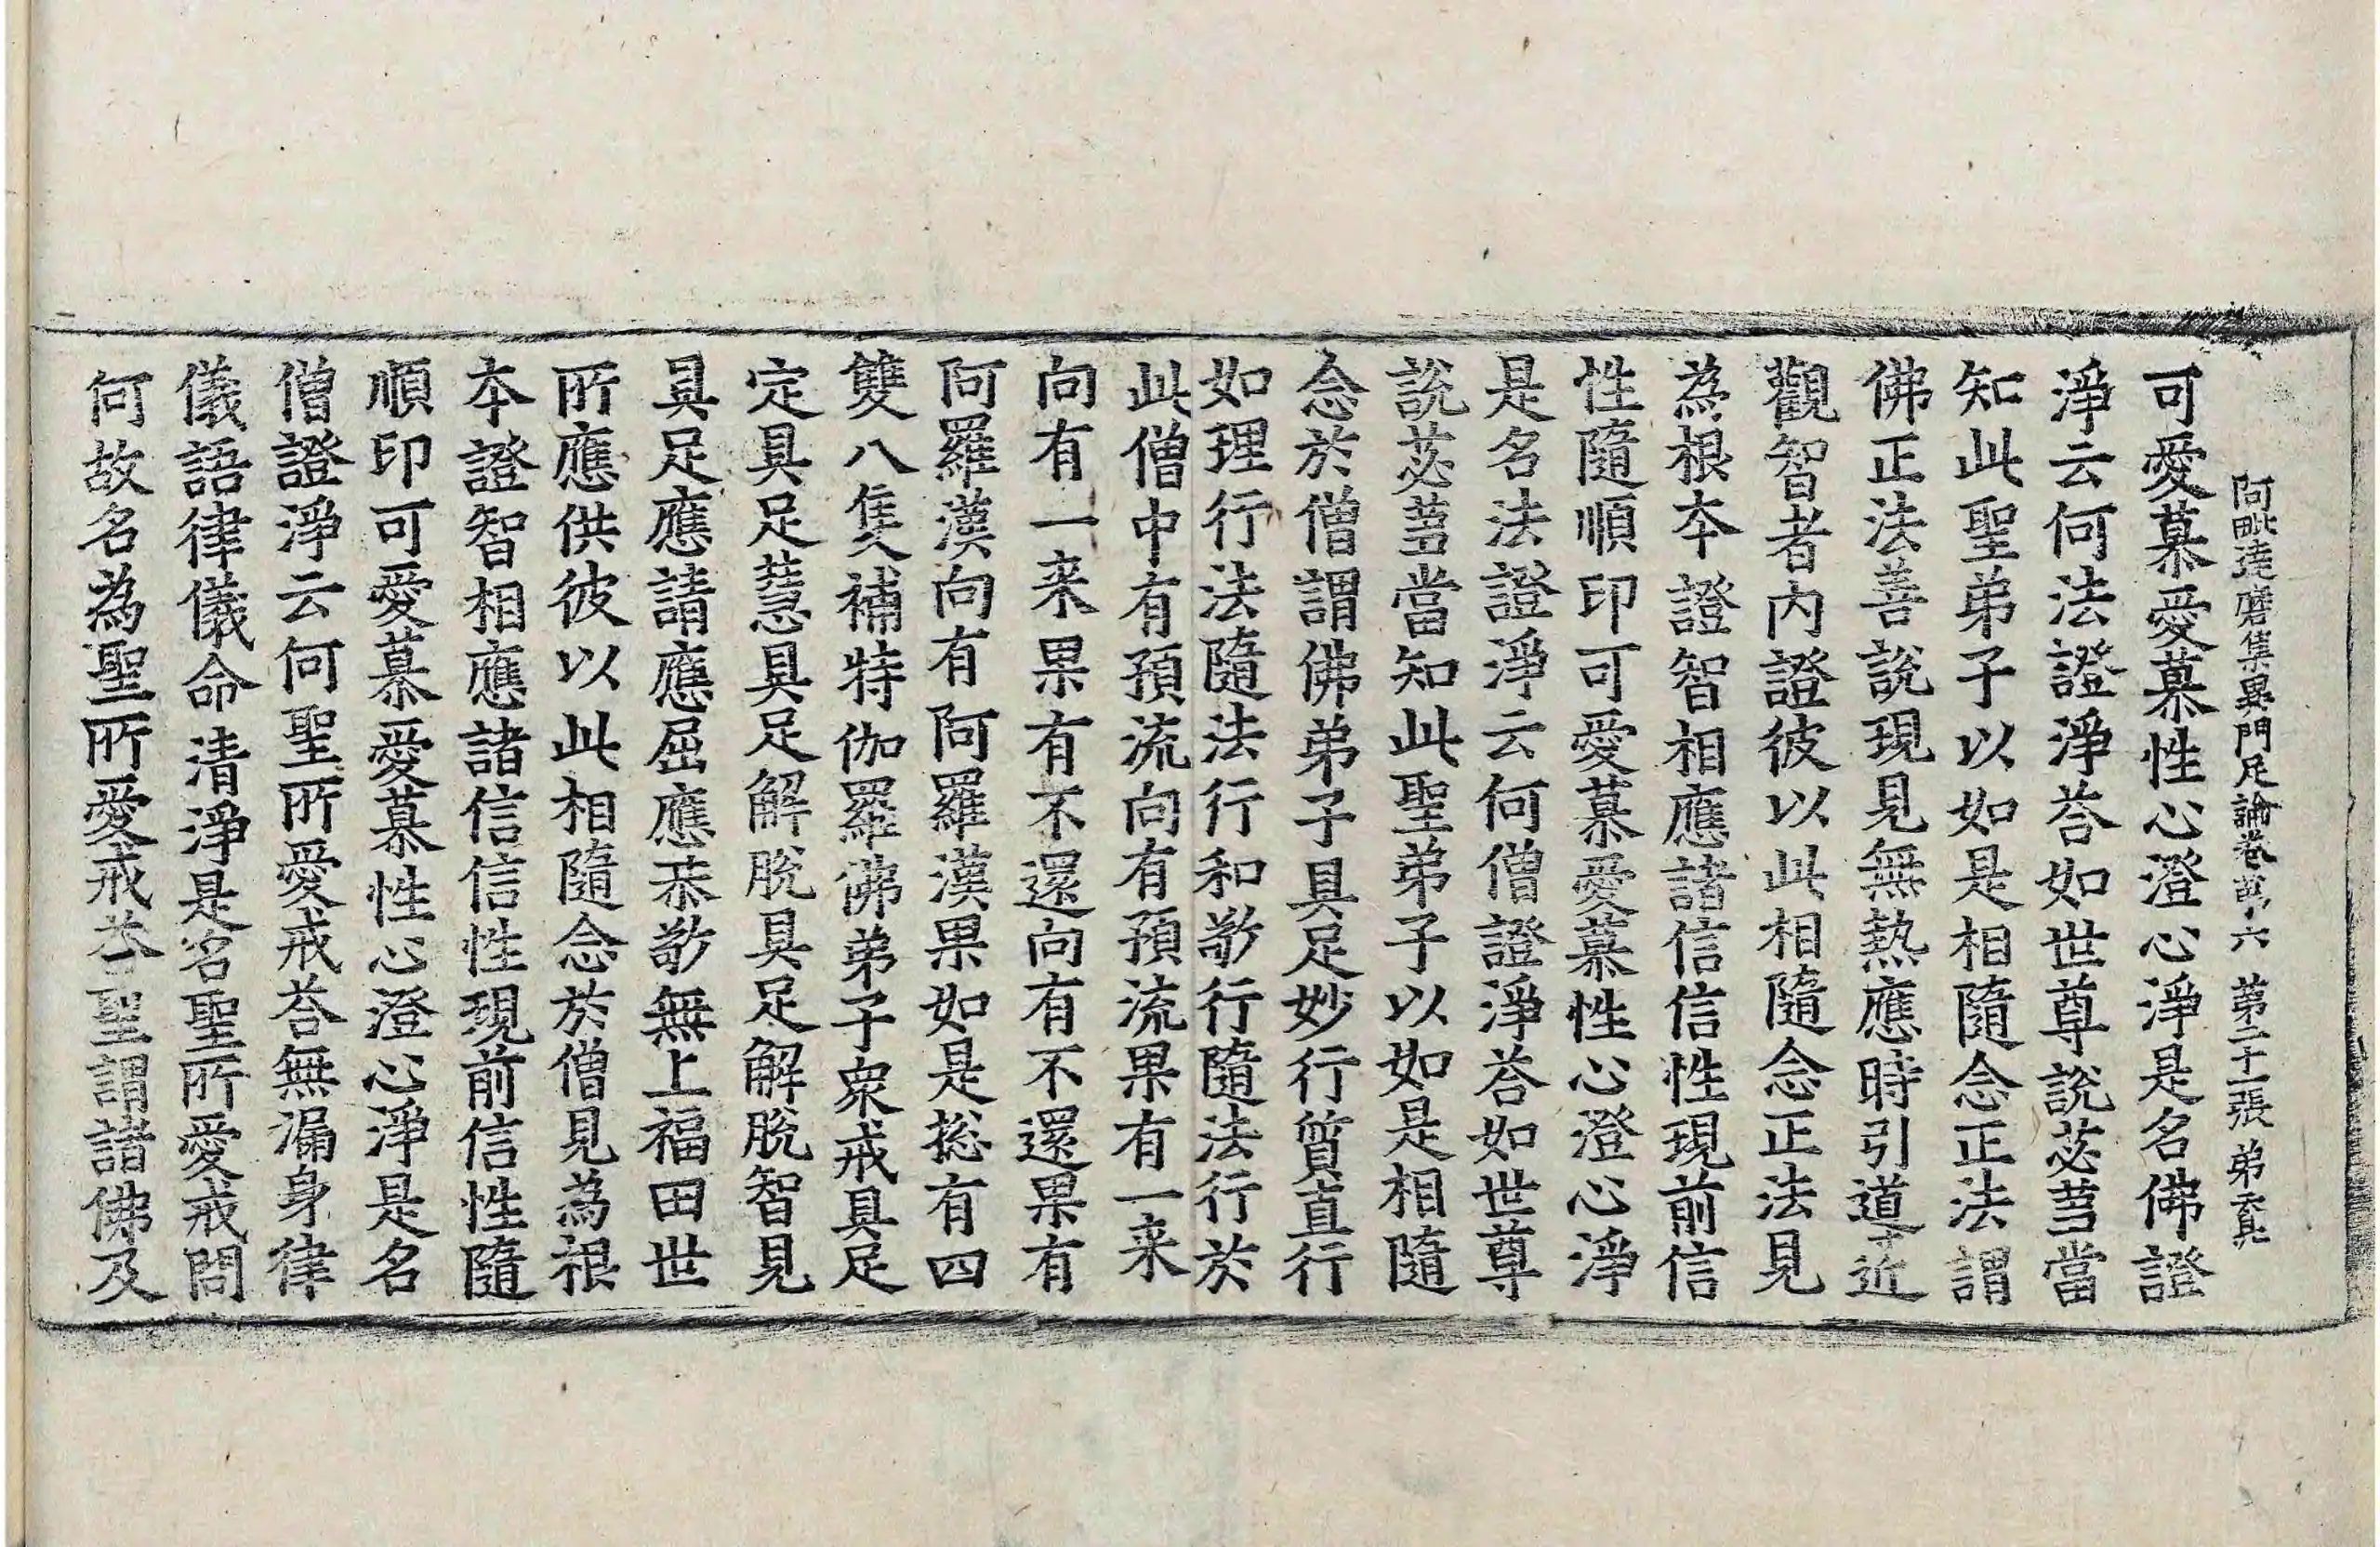 阿毗達磨集異門足論卷苐六 苐二十一張 弟
可愛慕愛慕性心澄心淨是名佛證
淨云何法證淨荅如世尊說苾蒭當
知此聖弟子以如是相隨念正法謂
佛正法善說現見無熱應時引導近
觀智者內證彼以此相隨念正法見
為根本證智相應諸信信性現前信
性隨順印可愛慕愛慕性心澄心淨
是名法證淨云何僧證淨荅如世尊
說苾蒭當知此聖弟子以如是相隨
念於僧謂佛弟子具足妙行質直行
如理行法隨法行和敬行隨法行於
此僧中有預流向有預流果有一来
向有一来果有不還向有不還果有
阿羅漢向有阿羅漢果如是揔有四
雙八隻補特伽羅佛弟子衆戒具足
定具足慧具足解脫具足解脫智見
具足應請應屈應恭敬無上福田世
所應供彼以此相隨念於僧見為根
本證智相應諸信信性現前信性隨
順印可愛慕愛慕性心澄心淨是名
僧證淨云何聖所愛戒荅無漏身律
儀語律儀命清淨是名聖所愛戒問
何故名為聖所愛戒荅聖謂諸佛及